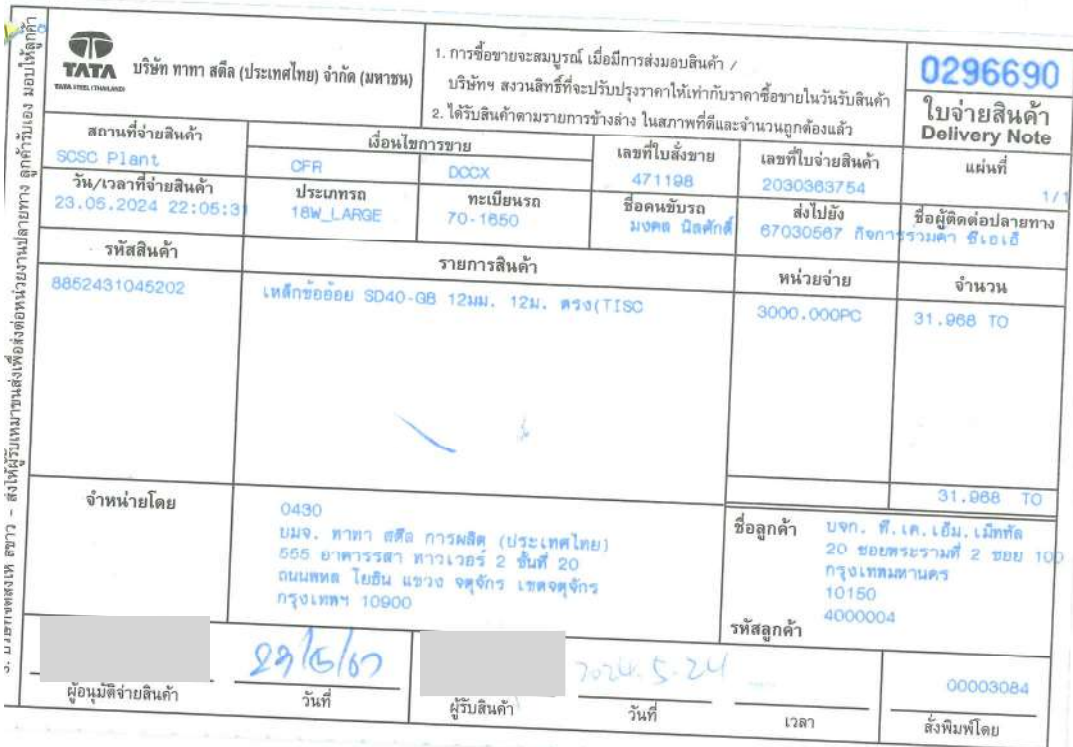 TATA
TATA STEEL (THAILAND)
บริษัท ทาทา สตีล (ประเทศไทย) จำกัด (มหาชน)
1. การซื้อขายจะสมบูรณ์ เมื่อมีการส่งมอบสินค้า /
บริษัทฯ สงวนสิทธิ์ที่จะปรับปรุงราคาให้เท่ากับราคาซื้อขายในวันรับสินค้า
2. ได้รับสินค้าตามรายการข้างล่าง ในสภาพที่ดีและจำนวนถูกต้องแล้ว
0296690
ใบจ่ายสินค้า
Delivery Note
สถานที่จ่ายสินค้า
SCSC Plant
เงื่อนไขการขาย
CFR DCCX
เลขที่ใบสั่งขาย
471198
เลขที่ใบจ่ายสินค้า
2030363754
แผ่นที่
1/1
วัน/เวลาที่จ่ายสินค้า
23.05.2024 22:05:31
ประเภทรถ
18W_LARGE
ทะเบียนรถ
70-1650
ชื่อคนขับรถ
มงคล นิลศักดิ์
ส่งไปยัง
67030567 กิจการร่วมค้า ซีเอเอ็
ชื่อผู้ติดต่อปลายทาง
รหัสสินค้า รายการสินค้า หน่วยจ่าย จำนวน
8852431045202 เหล็กข้ออ้อย SD40-GB 12มม. 12ม. ตรง(TISC 3000.000PC 31.968 TO
31.968 TO
จำหน่ายโดย
0430
บมจ. ทาทา สตีล การผลิต (ประเทศไทย)
555 อาคารรสา ทาวเวอร์ 2 ชั้นที่ 20
ถนนพหล โยธิน แขวง จตุจักร เขตจตุจักร
กรุงเทพฯ 10900
ชื่อลูกค้า บจก. ที.เค.เอ็ม.เม็ททัล
20 ซอยพระรามที่ 2 ซอย 100
กรุงเทพมหานคร
10150
รหัสลูกค้า 4000004
23/5/67
2024.5.24
00003084
ผู้อนุมัติจ่ายสินค้า วันที่ ผู้รับสินค้า วันที่ เวลา สั่งพิมพ์โดย